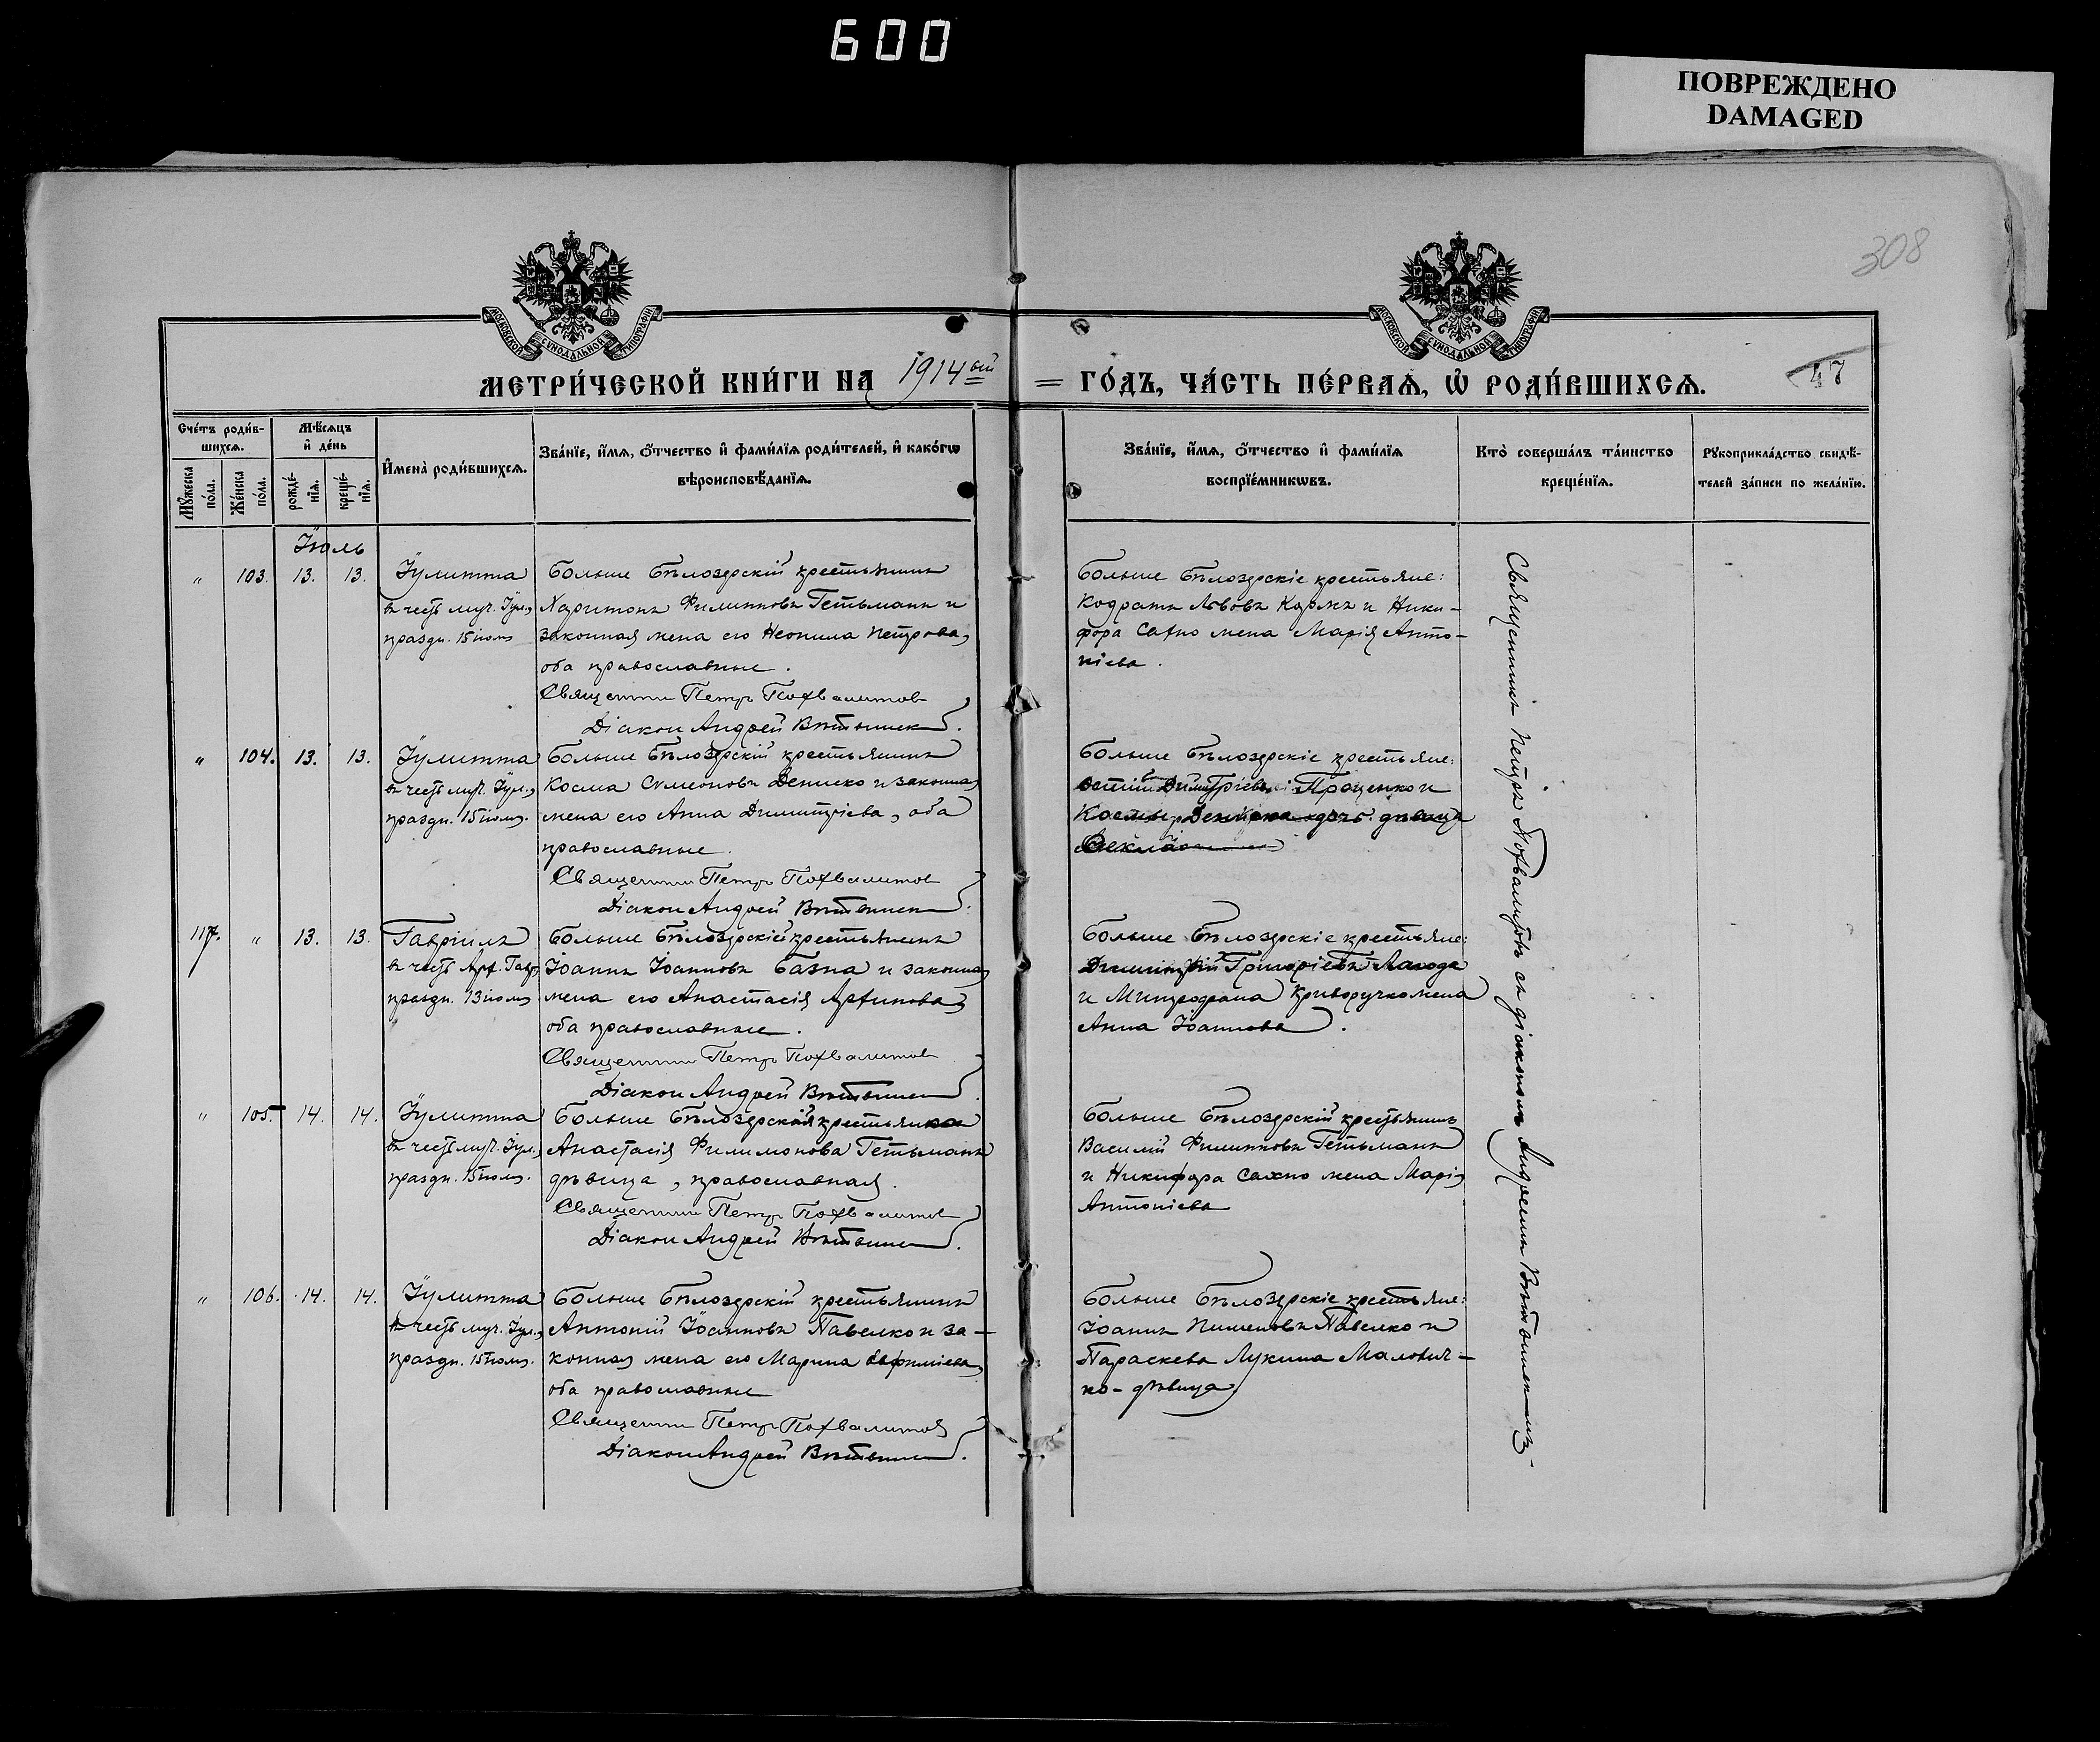 600
ПОВРЕЖДЕНО
DAMAGED
308
МОСКОВСКОЙ СѴНОДАЛЬНОЙ ТИПОГРАФІИ
МОСКОВСКОЙ СѴНОДАЛЬНОЙ ТИПОГРАФІИ
МЕТРИ́ЧЕСКОЙ КНИ́ГИ НА 1914ый = ГО́ДЪ, ЧА́СТЬ ПЕ́РВАѦ, Ѡ҆ РОДИ́ВШИХСѦ.
47
Сче́тъ роди́в-
шихсѧ.
Мꙋ́жеска по́ла.
Же́нска по́ла.
Мѣ́сѧцъ
и҆ де́нь
рожде́-нїѧ.
креще́-нїѧ.
И҆мена̀ роди́вшихсѧ.
Зва́нїе, и҆́мѧ, ѻ҆́тчество и҆ фами́лїѧ роди́телей, и҆ како́гѡ
вѣроисповѣ́данїѧ.
Зва́нїе, и҆́мѧ, ѻ҆́тчество и҆ фами́лїѧ
воспрїе́мникѡвъ.
Кто̀ соверша́лъ та́инство
креще́нїѧ.
Рꙋкоприкла́дство свидѣ́-
телей за́писи по жела́нїю.
Іюль
" 103. 13. 13.
Іулитта
въ честь муч. Іул.,
праздн. 15 іюля
Больше Бѣлозерскій крестьянинъ
Харитонъ Филипповъ Гетьманъ и
законная жена его Неонила Петрова,
оба православные.
Священник Петръ Похвалитов
Діакон Андрей
Больше Бѣлозерскіе крестьяне:
Кодратъ Львовъ и Ники-
фора Сахно жена Марія Анто-
ніева.
" 104. 13. 13.
Іулитта
въ честь муч. Іул.,
праздн. 15 іюля.
Больше Бѣлозерскій крестьянинъ
Косма Сѵмеоновъ Дениско и законная
жена его Анна Димитріева, оба
православные.
Священник Петръ Похвалитов
Діакон Андрей
Больше Бѣлозерскіе крестьяне:
Димитріевъ Проценко и
Космы дочь дѣвица
Ѳекла
117. " 13. 13.
Гавріилъ
въ честь Арх. Гавр.,
праздн. 13 іюля
Больше Бѣлозерскій крестьянинъ
Іоаннъ Іоанновъ Базна и законная
жена его Анастасія
оба православные.
Священник Петръ Похвалитов
Діакон Андрей
Больше Бѣлозерскіе крестьяне:
Димитрій Григоріевъ Лагода
и Митрофана Криворучко жена
Анна Іоаннова.
" 105. 14. 14.
Іулитта
въ честь муч. Іул.,
праздн. 15 іюля.
Больше Бѣлозерская крестьянка
Анастасія Филимонова Гетьманъ
дѣвица, православная.
Священник Петръ Похвалитов
Діакон Андрей
Больше Бѣлозерскій крестьянинъ
Василій Филипповъ Гетьманъ
и Никифора Сахно жена Марія
Антоніева
" 106. 14. 14.
Іулитта
въ честь муч. Іул.,
праздн. 15 іюля.
Больше Бѣлозерскій крестьянинъ
Антоній Іоанновъ Павелко и за-
конная жена его Марина Евфиміева,
оба православные
Священник Петръ Похвалитов
Діакон Андрей
Больше Бѣлозерскіе крестьяне:
Іоаннъ Пименовъ Павелко и
Параскева Лукина Малович-
ко - дѣвица.
Священникъ Петръ Похвалитовъ съ діакономъ Андреемъ